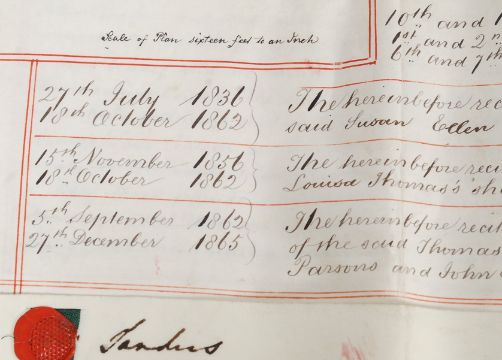 10th and 1
1st and 2n
6th and 7th
Scale of Plan sixteen feet to an Inch
27th July 1836
18th October 1862
The hereinbefore reci
said Susan Ellen
15th November 1856
18th October 1862
The hereinbefore reci
Louisa Thomas's sh
5th September 1862
27th December 1865
The hereinbefore recit
of the said Thomas
Parsons and John